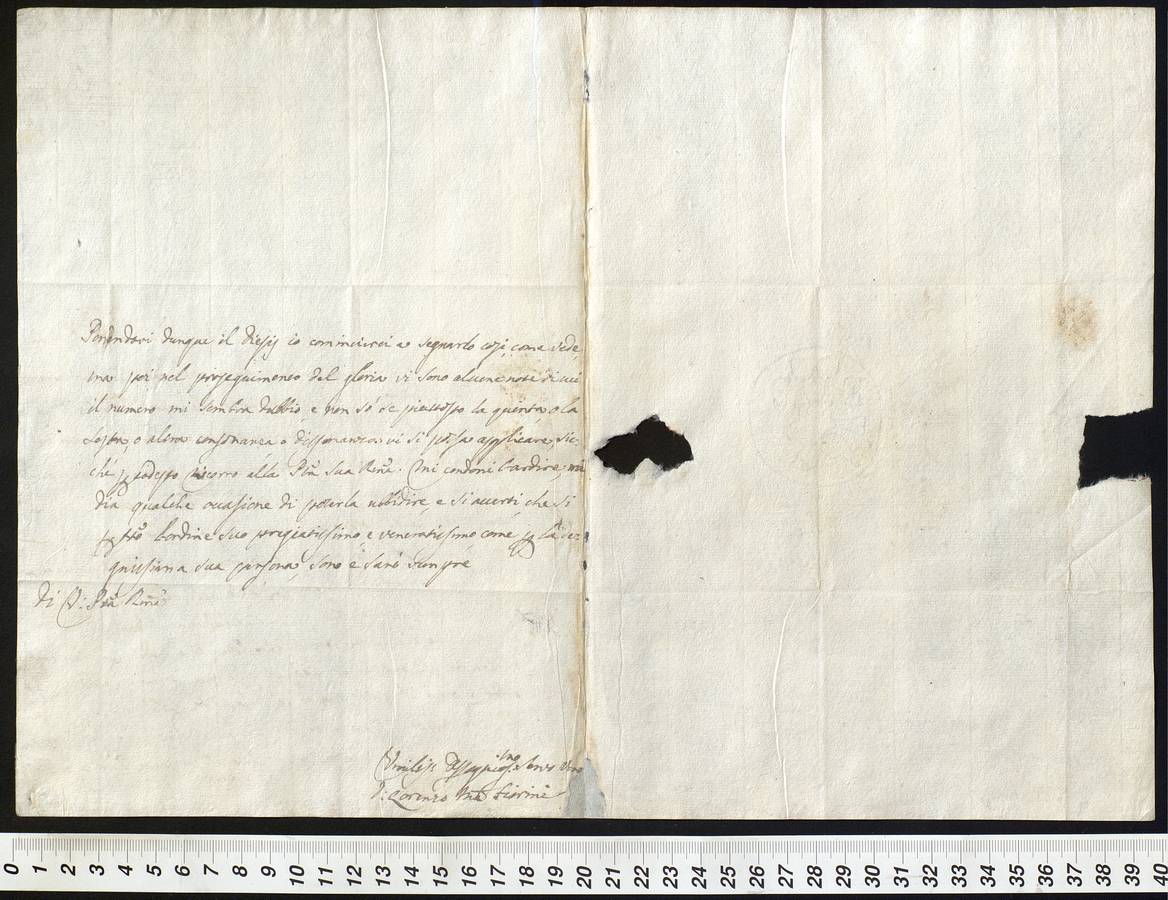 dunque il Diesis io comincierei a segnarlo così, come vede,
ma poi nel proseguimento del gloria vi sono alcune note di cui
il numero mi sembra dubbio e non sò se piuttosto la quinta, o la
sesta, o altra consonanza o dissonanza vi si possa applicare, sic-
chè questo ricorro alla Ptà Sua Rma. Mi condoni l'ardire, mi
dia qualche occasione di poterla ubbidire, e si accerti che si
l'ordine suo pregiatissimo e veneratissimo come la de-
gnissima sua persona, sono e sarò sempre
di V: Ptà Rma
Umiliss Osseqiosmo Servo Vero
D: Lorenzo Anto Fiorini
0 1 2 3 4 5 6 7 8 9 10 11 12 13 14 15 16 17 18 19 20 21 22 23 24 25 26 27 28 29 30 31 32 33 34 35 36 37 38 39 40